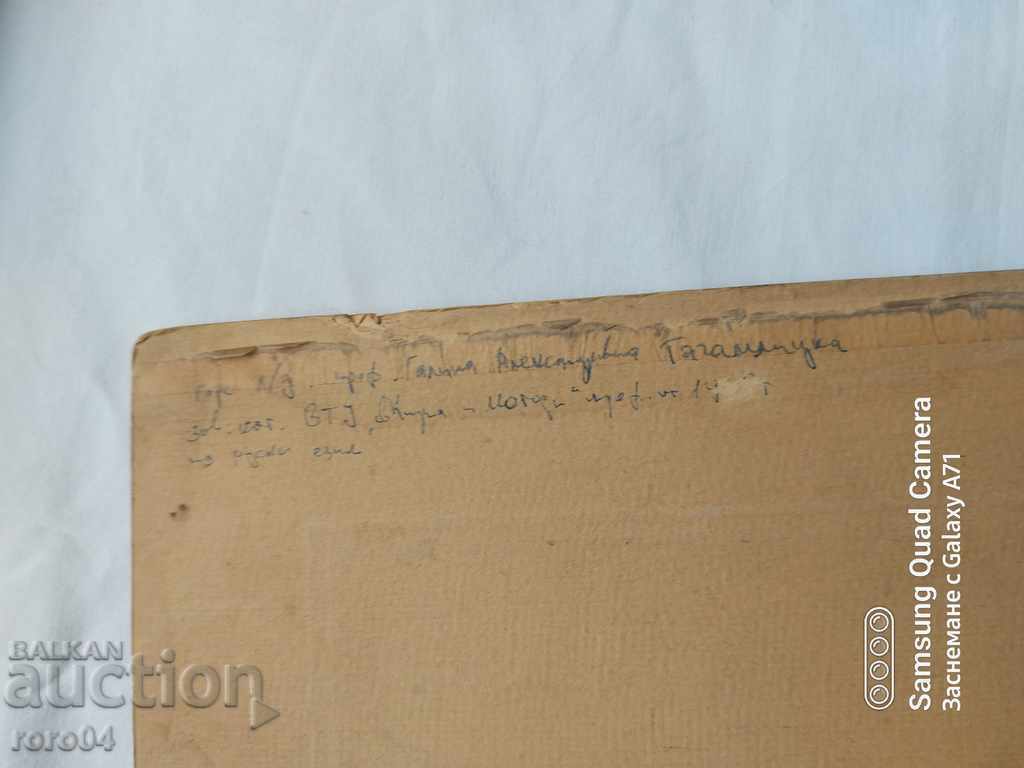 проф. Галина Александровна Тагамлицка
ВТУ "Кирил и Методи" проф. от
по руски език
Samsung Quad Camera
Заснемане с Galaxy A71
BALKAN
auction
roro04